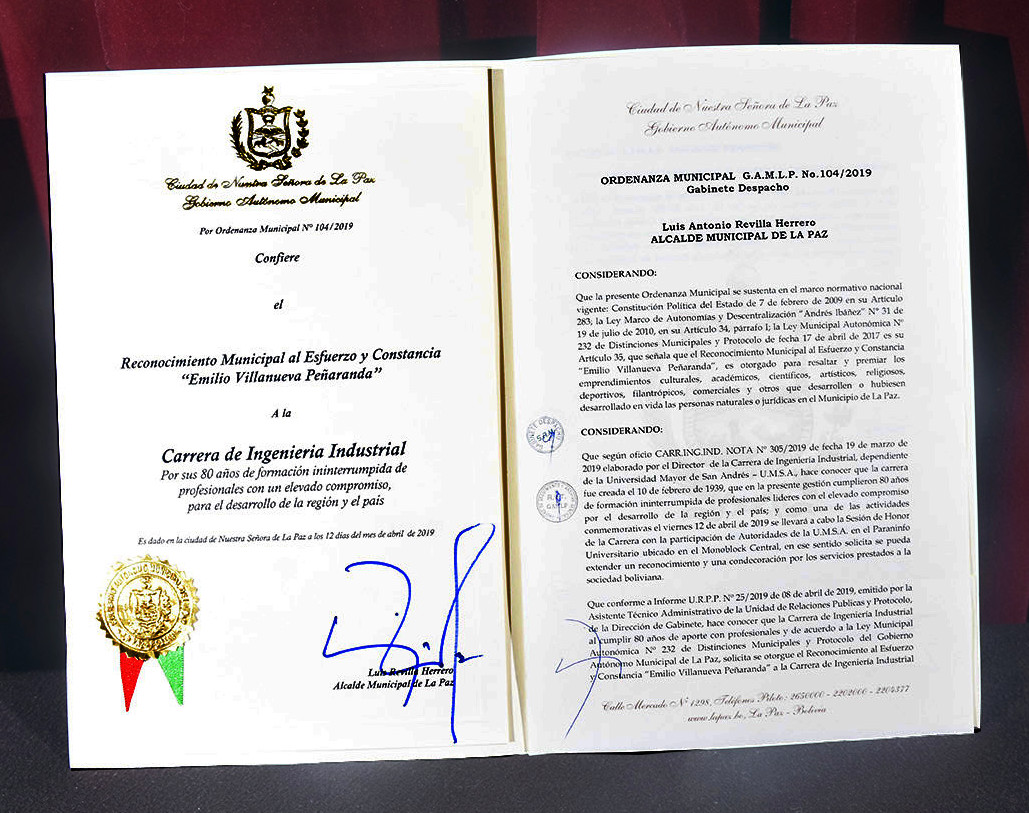 Ciudad de Nuestra Señora de La Paz
Gobierno Autónomo Municipal
Por Ordenanza Municipal Nº 104/2019
Confiere
el
Reconocimiento Municipal al Esfuerzo y Constancia
“Emilio Villanueva Peñaranda”
A la
Carrera de Ingenieria Industrial
Por sus 80 años de formación ininterrumpida de
profesionales con un elevado compromiso,
para el desarrollo de la región y el país
Es dado en la ciudad de Nuestra Señora de La Paz a los 12 días del mes de abril de 2019
Luis Revilla Herrero
Alcalde Municipal de La Paz
Ciudad de Nuestra Señora de La Paz
Gobierno Autónomo Municipal
ORDENANZA MUNICIPAL G.A.M.L.P. No.104/2019
Gabinete Despacho
Luis Antonio Revilla Herrero
ALCALDE MUNICIPAL DE LA PAZ
CONSIDERANDO:
Que la presente Ordenanza Municipal se sustenta en el marco normativo nacional
vigente: Constitución Política del Estado de 7 de febrero de 2009 en su Artículo
283; la Ley Marco de Autonomías y Descentralización “Andrés Ibáñez” Nº 31 de
19 de julio de 2010, en su Artículo 34, párrafo I; la Ley Municipal Autonómica Nº
232 de Distinciones Municipales y Protocolo de fecha 17 de abril de 2017 es su
Artículo 35, que señala que el Reconocimiento Municipal al Esfuerzo y Constancia
“Emilio Villanueva Peñaranda”, es otorgado para resaltar y premiar los
emprendimientos culturales, académicos, científicos, artísticos, religiosos,
deportivos, filantrópicos, comerciales y otros que desarrollen o hubiesen
desarrollado en vida las personas naturales o jurídicas en el Municipio de La Paz.
CONSIDERANDO:
Que según oficio CARR.ING.IND. NOTA Nº 305/2019 de fecha 19 de marzo de
2019 elaborado por el Director de la Carrera de Ingeniería Industrial, dependiente
de la Universidad Mayor de San Andrés – U.M.S.A., hace conocer que la carrera
fue creada el 10 de febrero de 1939, que en la presente gestión cumplieron 80 años
de formación ininterrumpida de profesionales líderes con el elevado compromiso
por el desarrollo de la región y el país; y como una de las actividades
conmemorativas el viernes 12 de abril de 2019 se llevará a cabo la Sesión de Honor
de la Carrera con la participación de Autoridades de la U.M.S.A. en el Paraninfo
Universitario ubicado en el Monoblock Central, en ese sentido solicita se pueda
extender un reconocimiento y una condecoración por los servicios prestados a la
sociedad boliviana.
Que conforme a Informe U.R.P.P. Nº 25/2019 de 08 de abril de 2019, emitido por la
Asistente Técnico Administrativo de la Unidad de Relaciones Publicas y Protocolo,
de la Dirección de Gabinete, hace conocer que la Carrera de Ingeniería Industrial
al cumplir 80 años de aporte con profesionales y de acuerdo a la Ley Municipal
Autonómica Nº 232 de Distinciones Municipales y Protocolo del Gobierno
Autónomo Municipal de La Paz, solicita se otorgue el Reconocimiento al Esfuerzo
y Constancia “Emilio Villanueva Peñaranda” a la Carrera de Ingeniería Industrial
Calle Mercado Nº 1298, Teléfonos Piloto: 2650000 - 2202000 - 2204377
www.lapaz.bo, La Paz - Bolivia